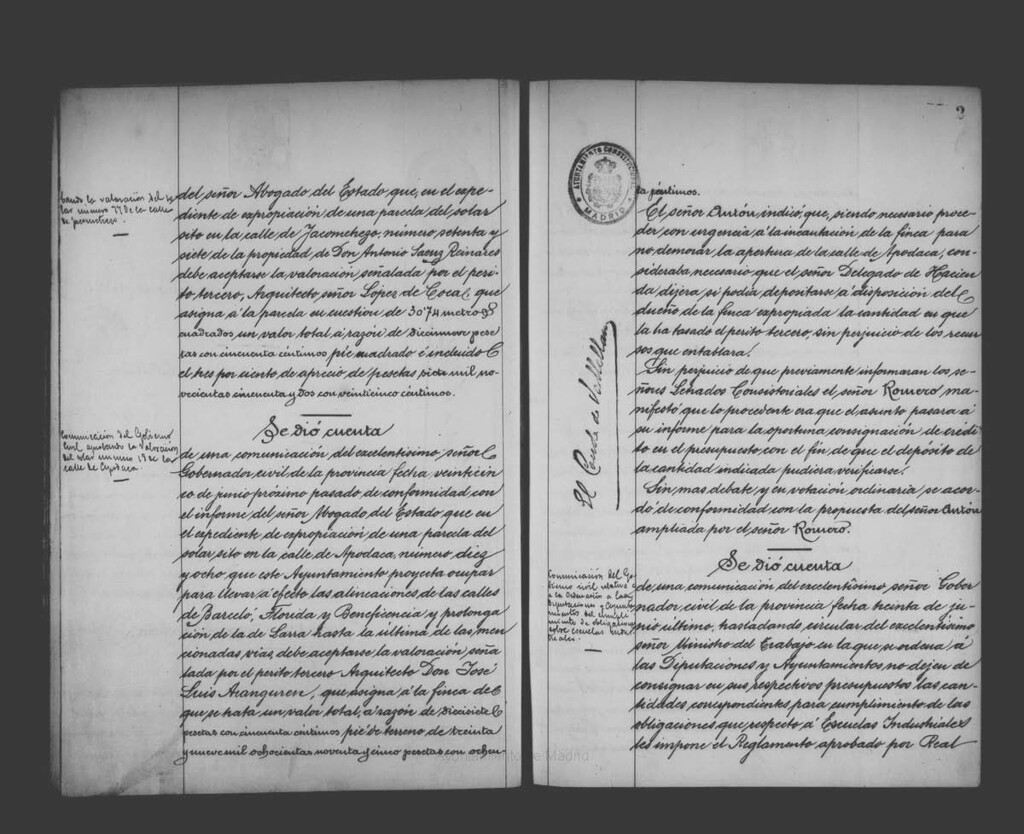 bando la valoración del so-
lar número 77 de la calle
de Jacometrezo.
del señor Abogado del Estado que, en el expe-
diente de expropiación de una parcela del solar
sito en la calle de Jacometrezo, número, setenta y
siete de la propiedad de Don Antonio Saenz Reinares
debe aceptarse la valoración señalada por el peri-
to tercero, Arquitecto, señor López de Coca, que
asigna á la parcela en cuestión de 30'74 metros
cuadrados, un valor total á razón de diecinueve pese
tas con cincuenta céntimos pié cuadrado é incluido
el tres por ciento, de aprecio, de pesetas siete mil no-
vecientas cincuenta y dos con veinticinco céntimos.
Comunicación del Gobierno
Civil aprobando la valoración
del solar número 18 de la
calle de Apodaca.
Se dió cuenta
de una comunicación del excelentísimo, señor
Gobernador civil de la provincia fecha veinticin
co de junio próximo pasado de conformidad con
el informe, del señor Abogado del Estado, que en
el expediente de expropiación de una parcela del
solar, sito en la calle de Apodaca, número, diez
y ocho, que este Ayuntamiento proyecta ocupar
para llevar á efecto las alineaciones, de las calles
de Barceló, Florida y Beneficencia y prolonga
ción de la de Larra hasta la última de las, men
cionadas, vías, debe, aceptarse la valoración, seña
lada por el perito tercero Arquitecto Don José
Luis Aranguren, que asigna á la finca de
que se trata un valor total, á razón de diecisiete
pesetas con cincuenta céntimos pié de terreno, de treinta
y nueve mil ochocientas noventa y cinco pesetas con ochen-
AYUNTAMIENTO CONSTITUCIONAL
MADRID
El Conde de Vallellano
ta céntimos.
El señor Antón, indicó, que, siendo necesario proce
der con urgencia á la incautación de la finca para
no demorar, la apertura de la calle de Apodaca, con-
sideraba necesario que el señor Delegado de Hacien
da dijera, si podía depositarse á disposición del
dueño de la finca expropiada la cantidad en que
la ha tasado el perito tercero, sin perjuicio de los recur
sos que entablara.
Sin perjuicio de que previamente informaran los, se-
ñores Letrados Consistoriales el señor Romero ma-
nifestó que lo procedente era que el asunto pasara á
su informe para la oportuna consignación de crédi
to en el presupuesto con el fin de que el depósito de
la cantidad indicada pudiera, verificarse.
Sin, mas debate, y en votación ordinaria, se acor-
dó de conformidad con la propuesta del señor Antón
ampliada por el señor Romero.
Comunicación del Go
bierno civil relativa
a la ordenación a las
Diputaciones y Ayunta-
mientos del cumpli
miento de obligaciones
sobre escuelas indus
triales.
Se dió cuenta
de una comunicación del excelentísimo, señor Gober
nador, civil de la provincia fecha treinta de ju-
nio último, trasladando circular del excelentísimo
señor Ministro del Trabajo en la que, se ordena, á
las Diputaciones y Ayuntamientos no dejen de
consignar en sus respectivos presupuestos las can-
tidades, correspondientes, para cumplimiento de las
obligaciones, que, respecto á Escuelas Industriales
les impone el Reglamento aprobado por Real
Ayuntamiento de Madrid